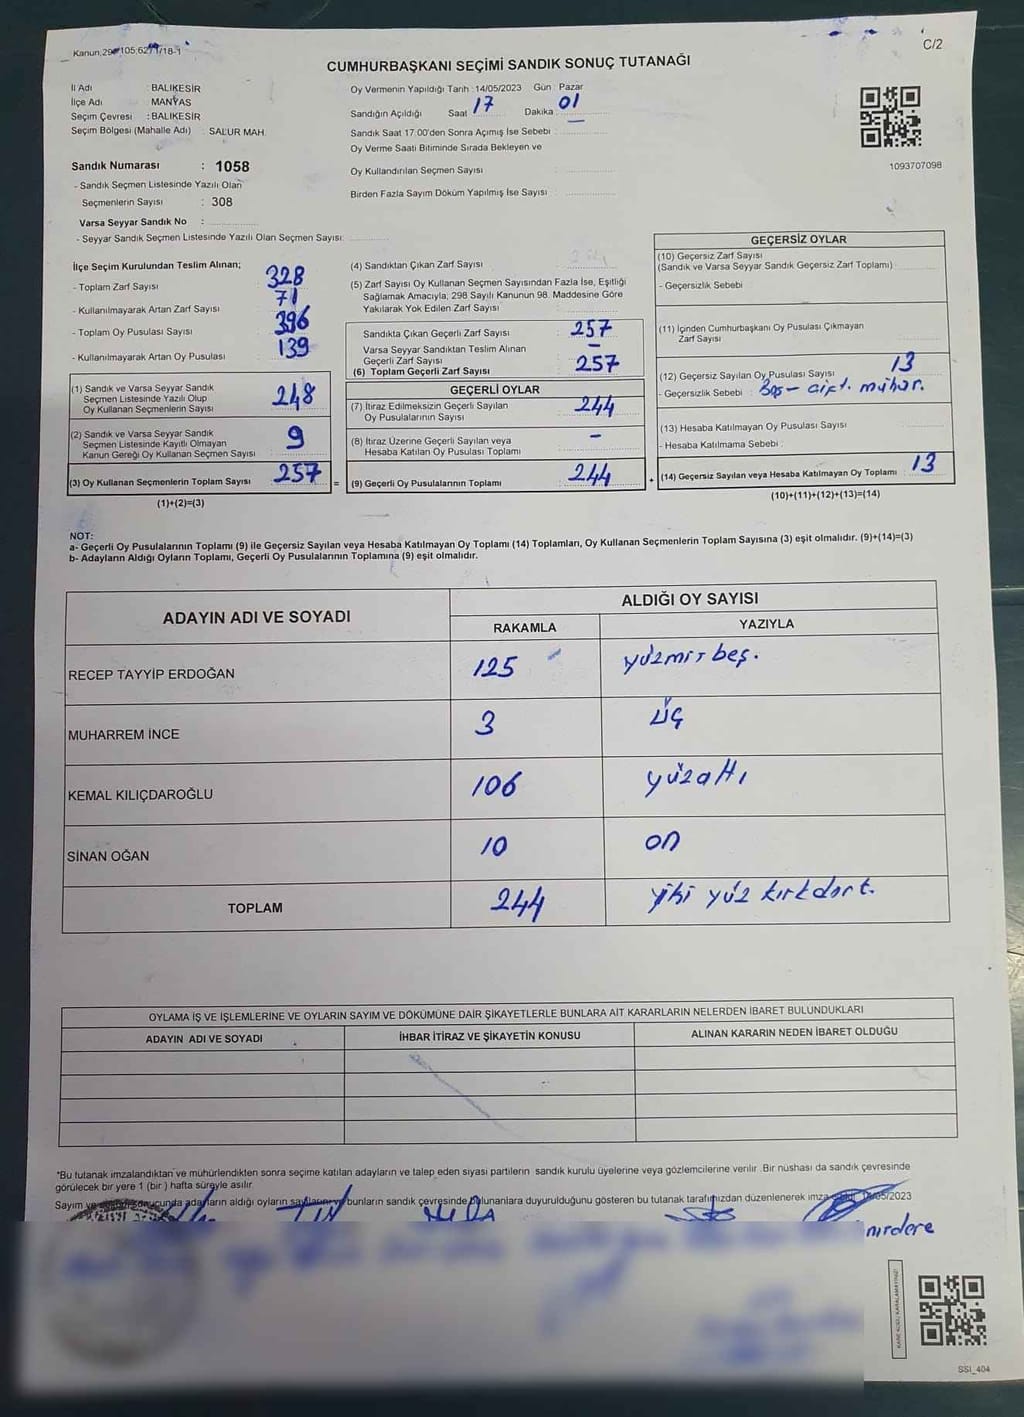 Kanun,298,105;6271/18-1
C/2
CUMHURBAŞKANI SEÇİMİ SANDIK SONUÇ TUTANAĞI
İl Adı : BALIKESİR
İlçe Adı MANYAS
Seçim Çevresi : BALIKESİR
Seçim Bölgesi (Mahalle Adı) : SALUR MAH.
Oy Vermenin Yapıldığı Tarih :14/05/2023 Gün : Pazar
Sandığın Açıldığı Saat 17 Dakika 01
Sandık Saat 17:00'den Sonra Açımış İse Sebebi
Oy Verme Saati Bitiminde Sırada Bekleyen ve
Oy Kullandırılan Seçmen Sayısı
Birden Fazla Sayım Döküm Yapılmış İse Sayısı
1093707098
Sandık Numarası : 1058
- Sandık Seçmen Listesinde Yazılı Olan
Seçmenlerin Sayısı : 308
Varsa Seyyar Sandık No :
- Seyyar Sandık Seçmen Listesinde Yazılı Olan Seçmen Sayısı:
İlçe Seçim Kurulundan Teslim Alınan;
- Toplam Zarf Sayısı 328
- Kullanılmayarak Artan Zarf Sayısı 71
- Toplam Oy Pusulası Sayısı 396
- Kullanılmayarak Artan Oy Pusulası 139
(1) Sandık ve Varsa Seyyar Sandık
Seçmen Listesinde Yazılı Olup
Oy Kullanan Seçmenlerin Sayısı 248
(2) Sandık ve Varsa Seyyar Sandık
Seçmen Listesinde Kayıtlı Olmayan
Kanun Gereği Oy Kullanan Seçmen Sayısı 9
(3) Oy Kullanan Seçmenlerin Toplam Sayısı 257 =
(1)+(2)=(3)
(4) Sandıktan Çıkan Zarf Sayısı
(5) Zarf Sayısı Oy Kullanan Seçmen Sayısından Fazla İse, Eşitliği
Sağlamak Amacıyla; 298 Sayılı Kanunun 98. Maddesine Göre
Yakılarak Yok Edilen Zarf Sayısı
Sandıkta Çıkan Geçerli Zarf Sayısı 257
Varsa Seyyar Sandıktan Teslim Alınan
Geçerli Zarf Sayısı –
(6) Toplam Geçerli Zarf Sayısı 257
GEÇERLİ OYLAR
(7) İtiraz Edilmeksizin Geçerli Sayılan
Oy Pusulalarının Sayısı 244
(8) İtiraz Üzerine Geçerli Sayılan veya
Hesaba Katılan Oy Pusulası Toplamı –
(9) Geçerli Oy Pusulalarının Toplamı 244 +
GEÇERSİZ OYLAR
(10) Geçersiz Zarf Sayısı
(Sandık ve Varsa Seyyar Sandık Geçersiz Zarf Toplamı)
- Geçersizlik Sebebi
(11) İçinden Cumhurbaşkanı Oy Pusulası Çıkmayan
Zarf Sayısı
(12) Geçersiz Sayılan Oy Pusulası Sayısı 13
- Geçersizlik Sebebi : Boş – çift. mühür.
(13) Hesaba Katılmayan Oy Pusulası Sayısı
- Hesaba Katılmama Sebebi :
(14) Geçersiz Sayılan veya Hesaba Katılmayan Oy Toplamı 13
(10)+(11)+(12)+(13)=(14)
NOT:
a- Geçerli Oy Pusulalarının Toplamı (9) ile Geçersiz Sayılan veya Hesaba Katılmayan Oy Toplamı (14) Toplamları, Oy Kullanan Seçmenlerin Toplam Sayısına (3) eşit olmalıdır. (9)+(14)=(3)
b- Adayların Aldığı Oyların Toplamı, Geçerli Oy Pusulalarının Toplamına (9) eşit olmalıdır.
ADAYIN ADI VE SOYADI ALDIĞI OY SAYISI
RAKAMLA YAZIYLA
RECEP TAYYİP ERDOĞAN 125 yüzmirbeş.
MUHARREM İNCE 3 üç
KEMAL KILIÇDAROĞLU 106 yüzaltı
SİNAN OĞAN 10 on
TOPLAM 244 yiki yüz kırkdört.
OYLAMA İŞ VE İŞLEMLERİNE VE OYLARIN SAYIM VE DÖKÜMÜNE DAİR ŞİKAYETLERLE BUNLARA AİT KARARLARIN NELERDEN İBARET BULUNDUKLARI
ADAYIN ADI VE SOYADI İHBAR İTİRAZ VE ŞİKAYETİN KONUSU ALINAN KARARIN NEDEN İBARET OLDUĞU
*Bu tutanak imzalandıktan ve mühürlendikten sonra seçime katılan adayların ve talep eden siyasi partilerin sandık kurulu üyelerine veya gözlemcilerine verilir. Bir nüshası da sandık çevresinde
görülecek bir yere 1 (bir) hafta süreyle asılır.
Sayım ve sonucunda adayların aldığı oyların sayılarını bunların sandık çevresinde bulunanlara duyurulduğunu gösteren bu tutanak tarafımızdan düzenlenerek imza
SSI_404